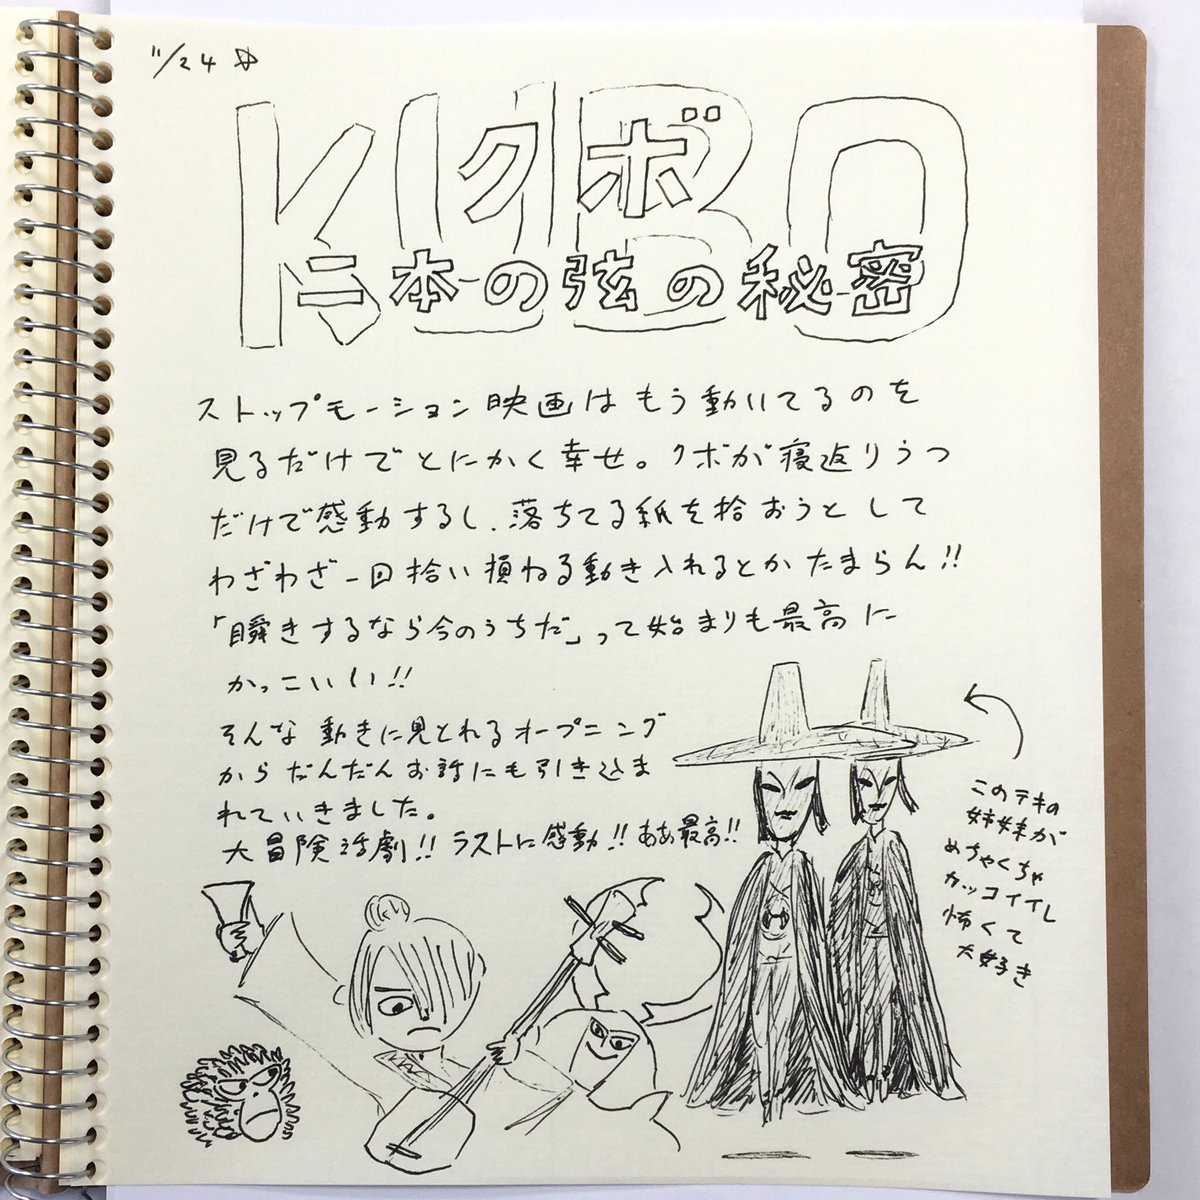 11/24
KUBO
クボ
二本の弦の秘密
ストップモーション映画はもう動いてるのを
見るだけでとにかく幸せ。クボが寝返りうつ
だけで感動するし、落ちてる紙を拾おうとして
わざわざ一回拾い損ねる動き入れるとかたまらん!!
「瞬きするなら今のうちだ」って始まりも最高に
かっこいい!!
そんな動きに見とれるオープニング
からだんだんお話にも引き込ま
れていきました。
大冒険活劇!! ラストに感動!! ああ最高!!
このテキの
姉妹が
めちゃくちゃ
カッコイイし
怖くて
大好き